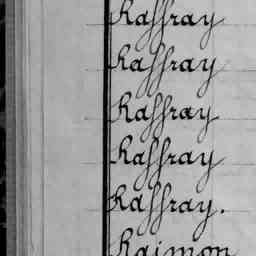 Raffray
Raffray
Raffray
Raffray
Raffray.
Raimon